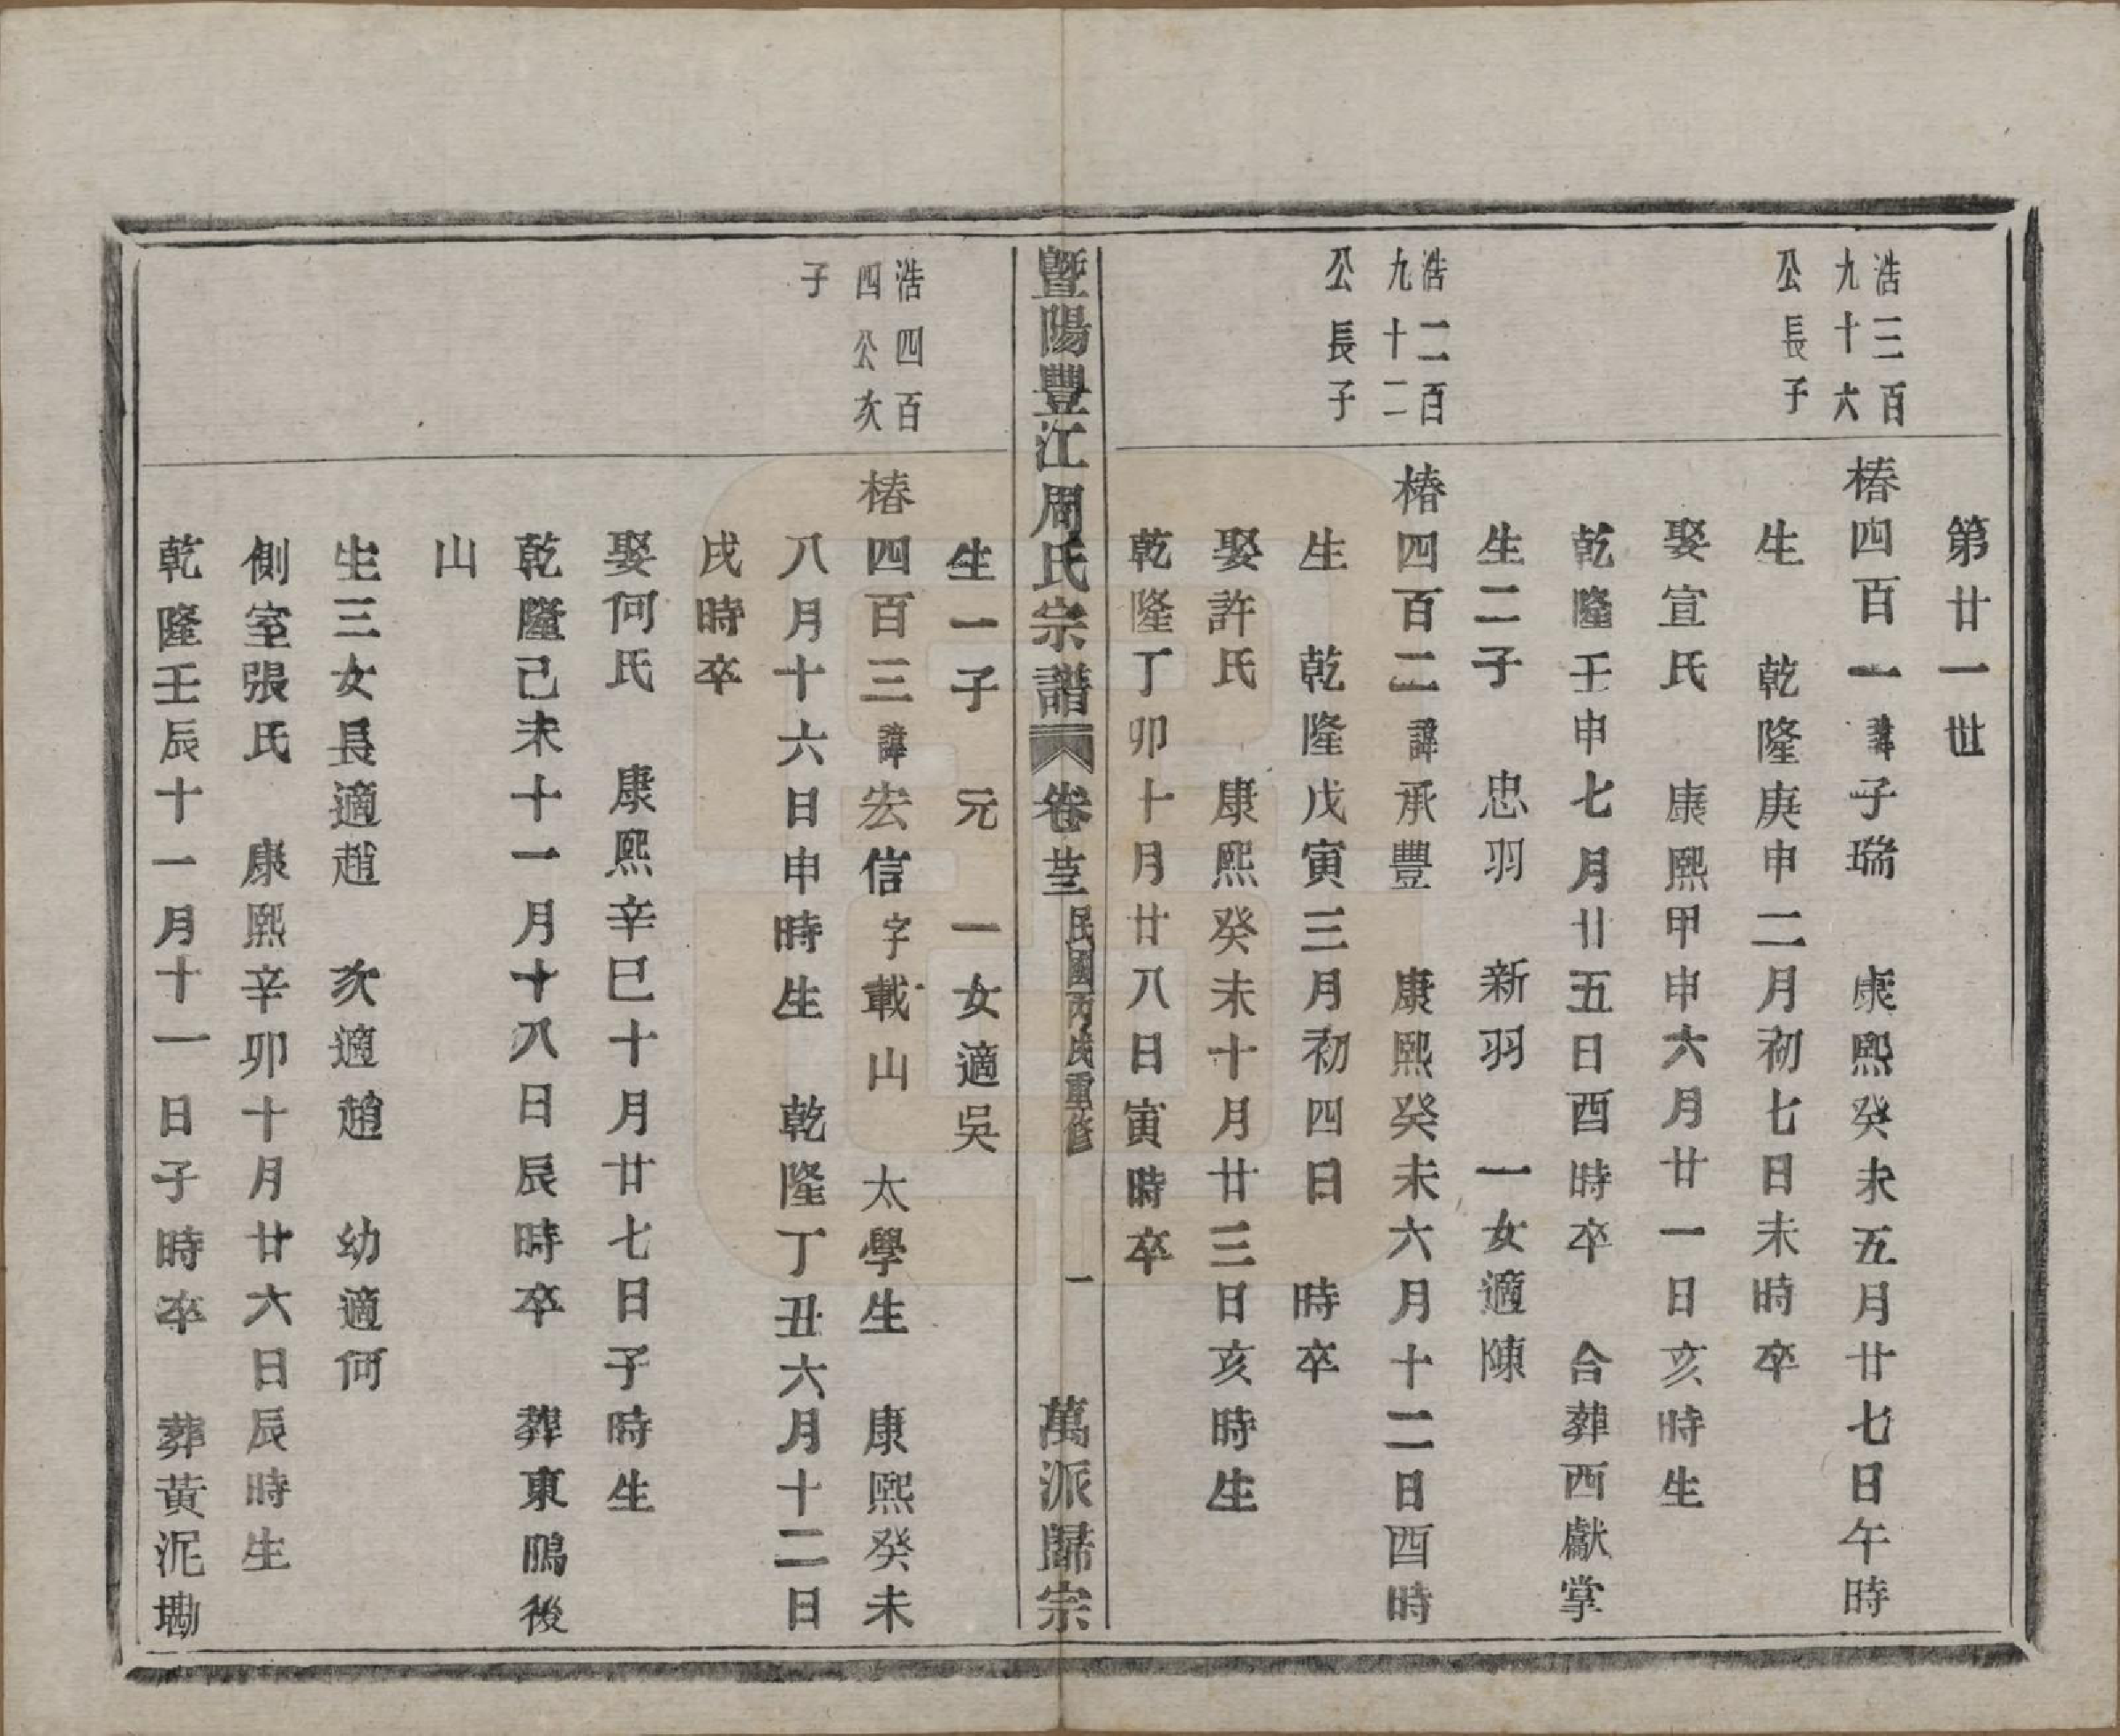 第廿一世
浩三百
九十六
公長子
椿四百一諱子瑞　康熙癸未五月廿七日午時
生　乾隆庚申二月初七日未時卒
娶宣氏　康熙甲申六月廿一日亥時生
乾隆壬申七月廿五日酉時卒　合葬西獻掌
生二子　忠羽　新羽　一女適陳
浩二百
九十二
公長子
椿四百二諱承豐　康熙癸未六月十二日酉時
生　乾隆戊寅三月初四日　時卒
娶許氏　康熙癸未十月廿三日亥時生
乾隆丁卯十月廿八日寅時卒
暨陽豐江周氏宗譜　卷廿三　民國丙戌重修　一　萬派歸宗
生一子　元　一女適吳
浩四百
四公次
子
椿四百三諱宏信字載山　太學生　康熙癸未
八月十六日申時生　乾隆丁丑六月十二日
戌時卒
娶何氏　康熙辛巳十月廿七日子時生
乾隆己未十一月十八日辰時卒　葬東鵰後
山
生三女長適趙　次適趙　幼適何
側室張氏　康熙辛卯十月廿六日辰時生
乾隆壬辰十一月十一日子時卒　葬黃泥墈